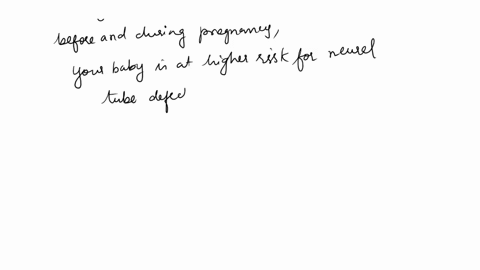 before and during pregnancy,
your baby is at higher risk for neural
tube defec